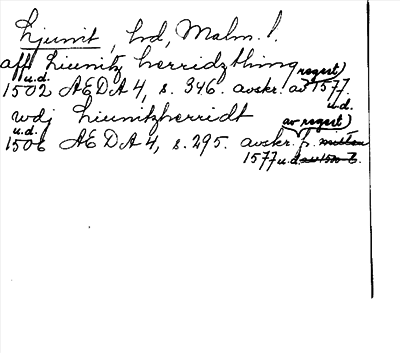 Ljunit, hd, Malm. l.
aff Liunitz herridzthing
u.d. regest)
1502 AEDA 4, s. 346. avskr. av 1577.
u.d.
wdj Liunitzherridt
u.d. av regest)
1506 AEDA 4, s. 295. avskr. fr. mitten
1577 u.d. av 1500-t.